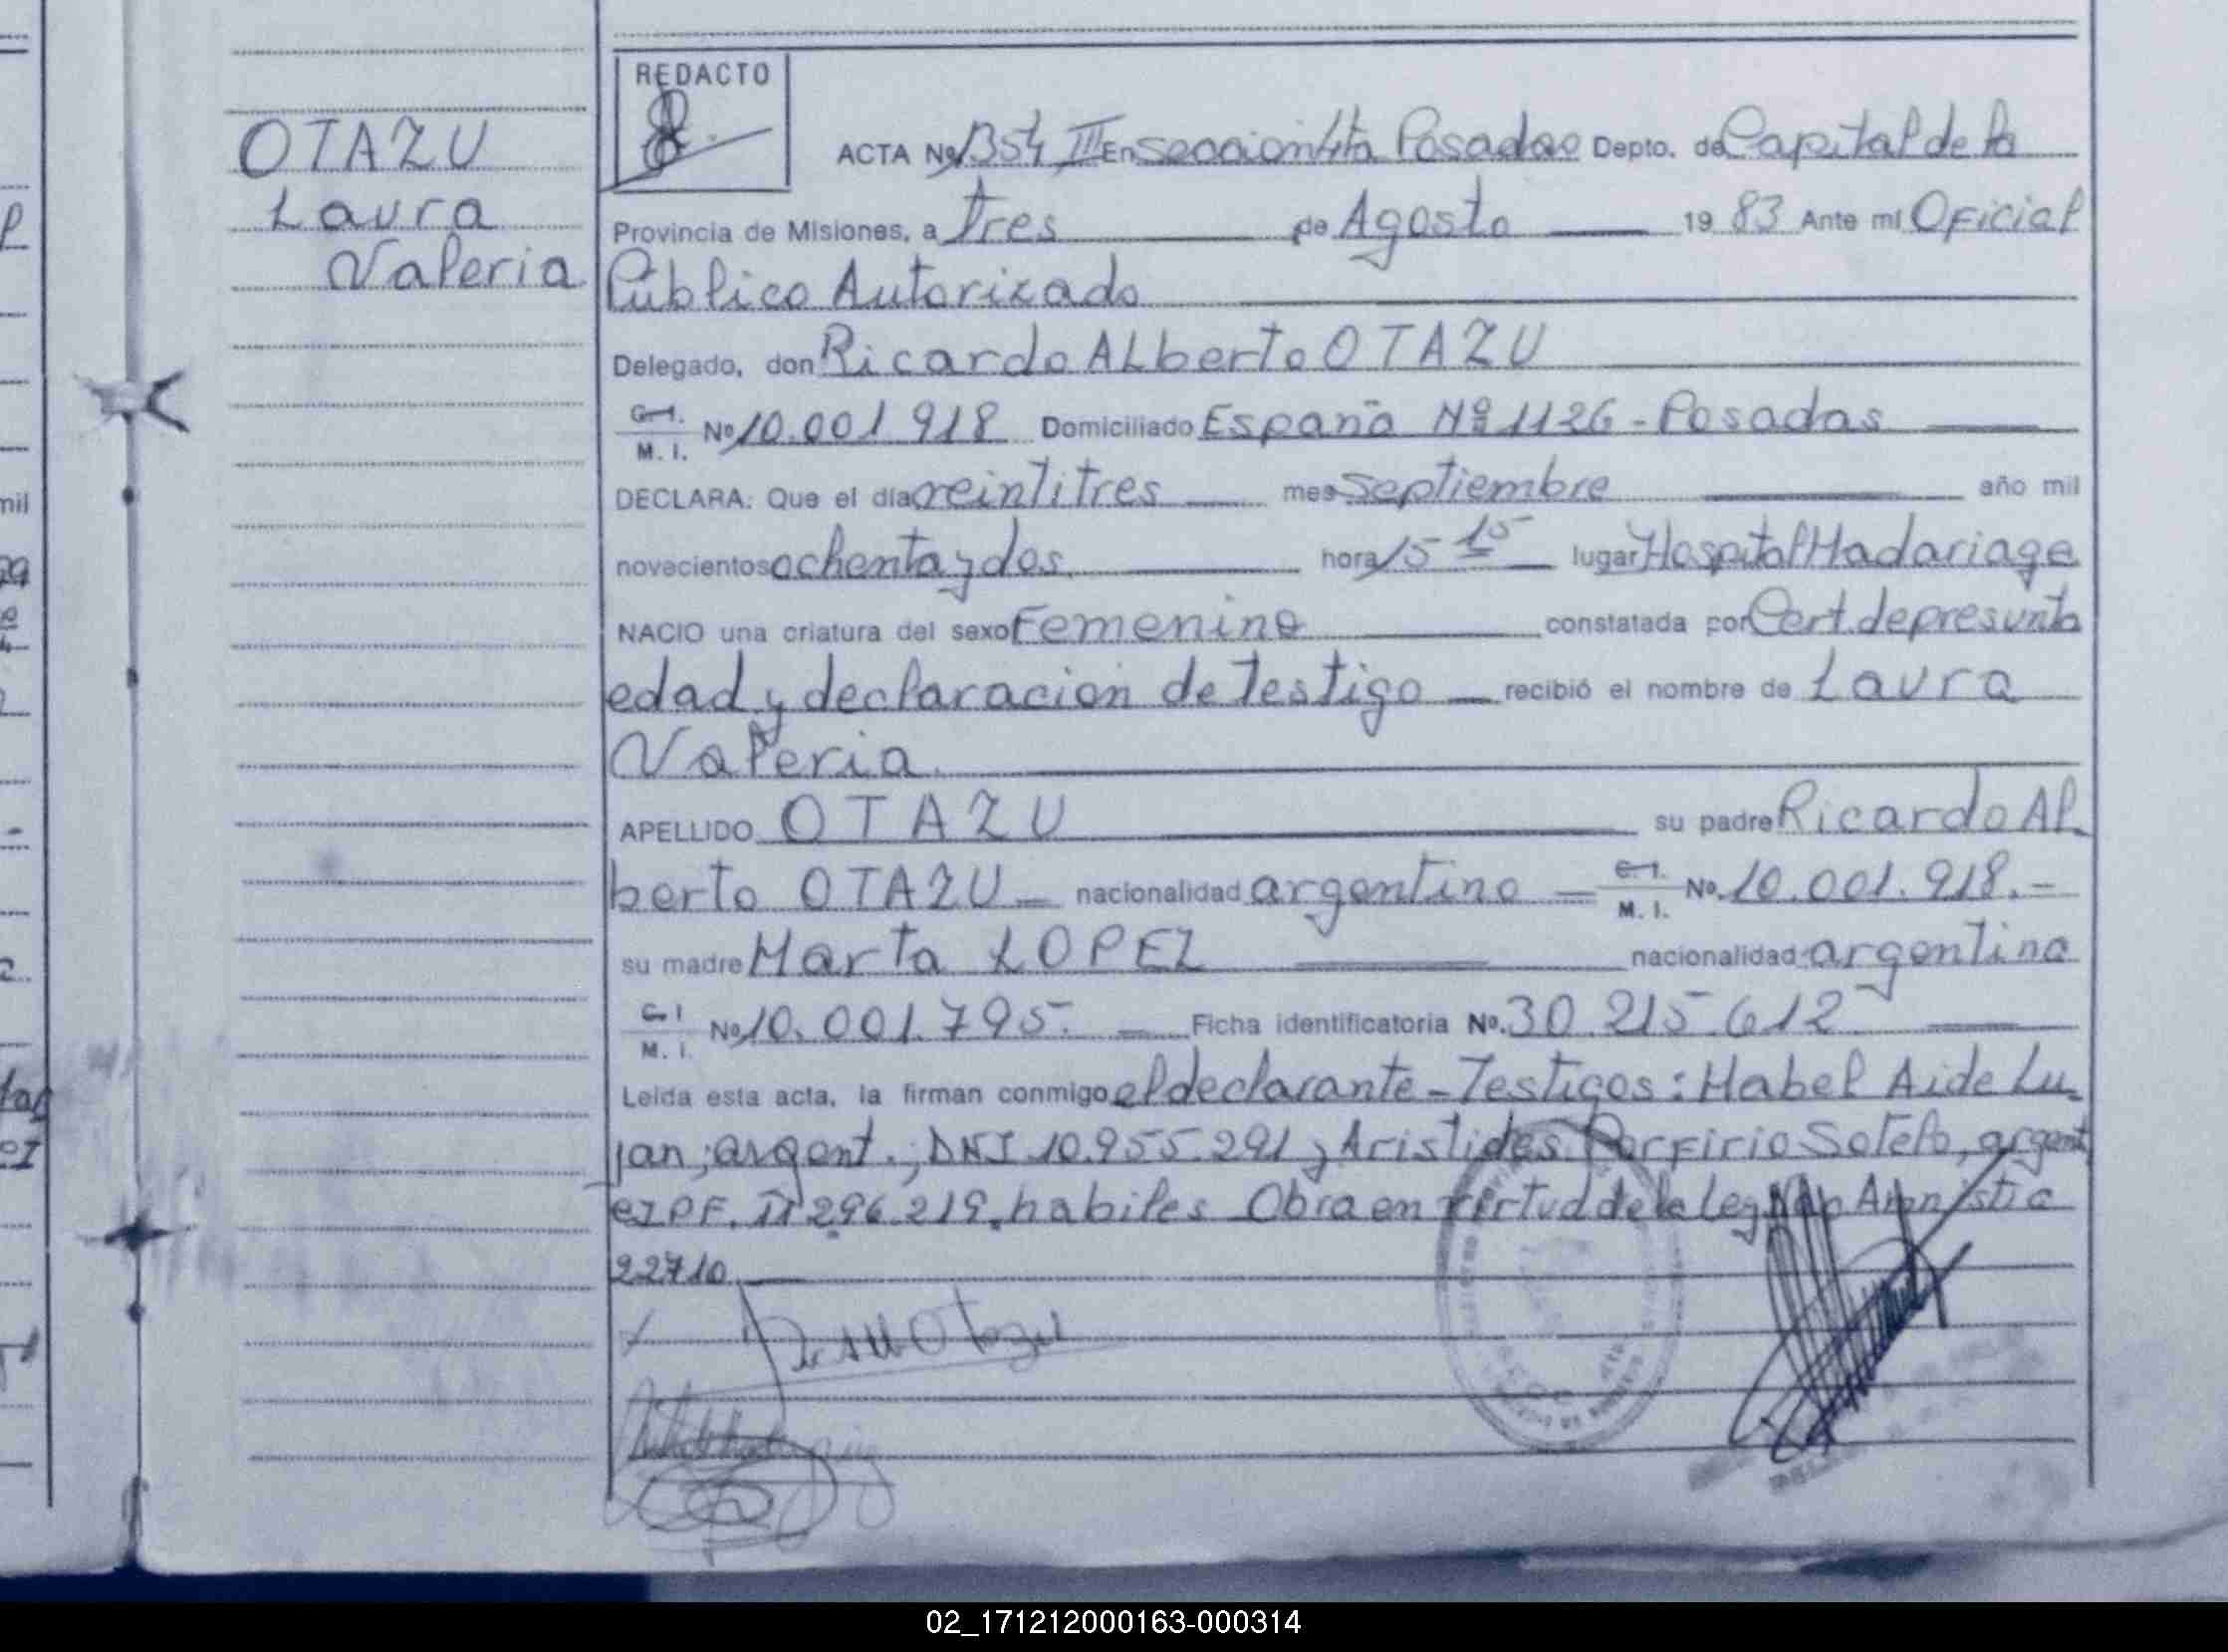 REDACTO
OTAZU
Laura
Valeria
ACTA Nº 1354 III En seccion 4ta Posadas Depto. de Capital de la
Provincia de Misiones, a tres de Agosto 19 83 Ante mi Oficial
Público Autorizado
Delegado, don Ricardo ALberto OTAZU
C.I.
M. I. Nº 10.001 918 Domiciliado España Nº 1126 - Posadas
DECLARA: Que el día veintitres mes septiembre año mil
novecientos ochenta y dos hora 15 15 lugar Hospital Madariaga
NACIO una criatura del sexo Femenino constatada por Cert. de presunta
edad y declaracion de testigo recibió el nombre de Laura
Valeria.
APELLIDO OTAZU su padre Ricardo Al
berto OTAZU nacionalidad argentino C.I.
M. I. Nº 10.001.918.-
su madre Marta LOPEZ nacionalidad argentina
C.I.
M. I. Nº 10.001.795. Ficha identificatoria Nº. 30.215.612
Leída esta acta, la firman conmigo el declarante - Testigos: Mabel Aide Lu
jan, argent.; DNI 10.955.291 y Aristides Porfirio Sotelo, argent
CIPF. Nº 296.219, habiles Obra en virtud de la Ley Amnistia
22710
Otazu
02_171212000163-000314